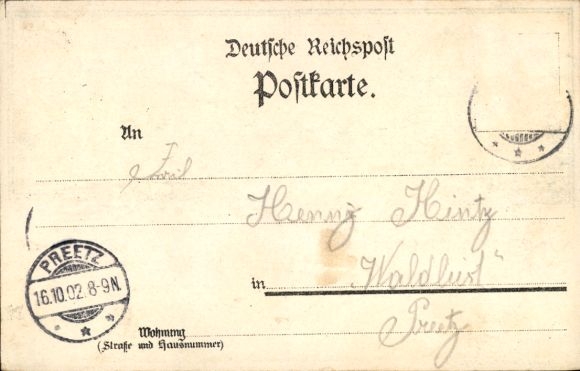 Deutsche Reichspost
Postkarte.
An
Henny Hintz
in „Waldlust“
Preetz
PREETZ
16.10.02.8-9N.
Wohnung
(Straße und Hausnummer)